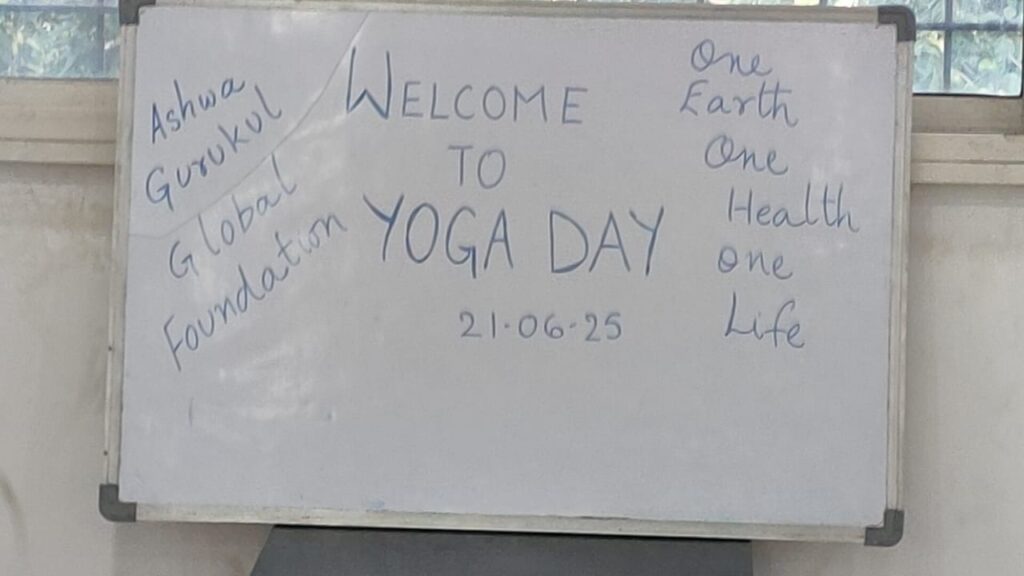 Ashwa
Gurukul
Global
Foundation
WELCOME
TO
YOGA DAY
21-06-25
One
Earth
One
Health
One
Life